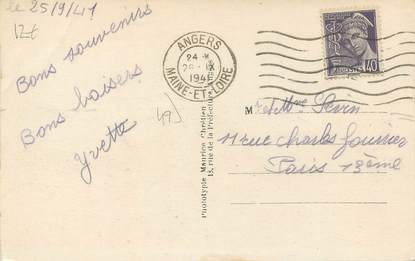 le 25/9/41
12€
Bons souvenirs
Bons baisers
Yvette
49
ANGERS
24 -
26 - IX
1941
MAINE-ET-LOIRE
40
Phototypie Maurice Chrétien
rue de la Préfecture
Mr et Mme Sevin
11 rue Charles fourier
Paris 13ème